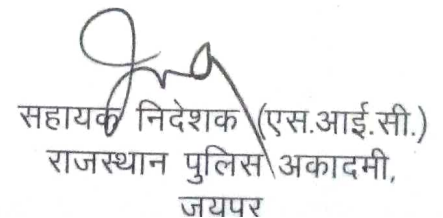 सहायक निदेशक (एस.आई.सी.)
राजस्थान पुलिस अकादमी,
जयपुर